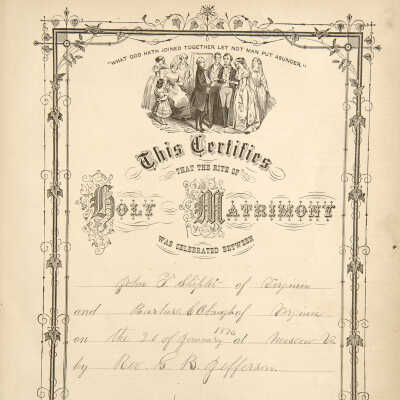 "WHAT GOD HATH JOINED TOGETHER LET NOT MAN PUT ASUNDER."
This Certifies
THAT THE RITE OF
HOLY MATRIMONY
WAS CELEBRATED BETWEEN
John F of Virginia
and of Virginia
on the 20 of January 1876 at Moscow Va
by Rev. S B Jefferson